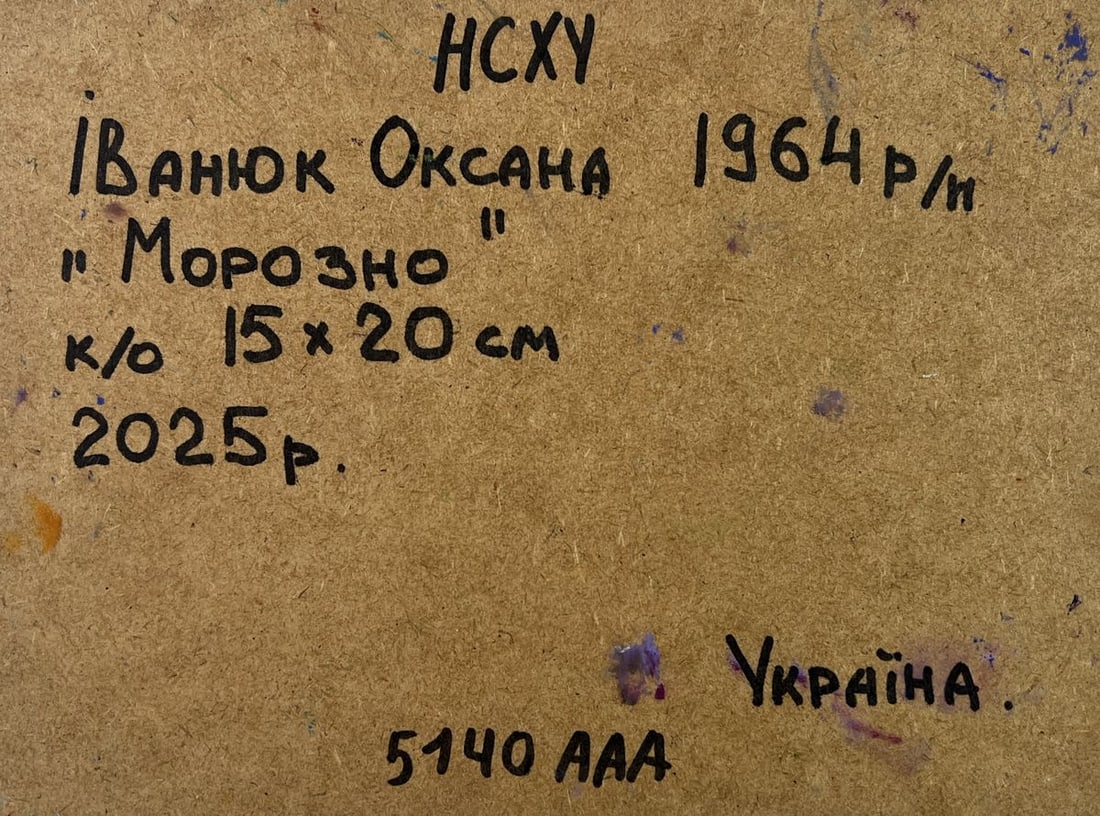 НСХУ
Іванюк Оксана 1964 р/н
"Морозно"
к/о 15 x 20 см
2025р.
Україна.
5140 ААА